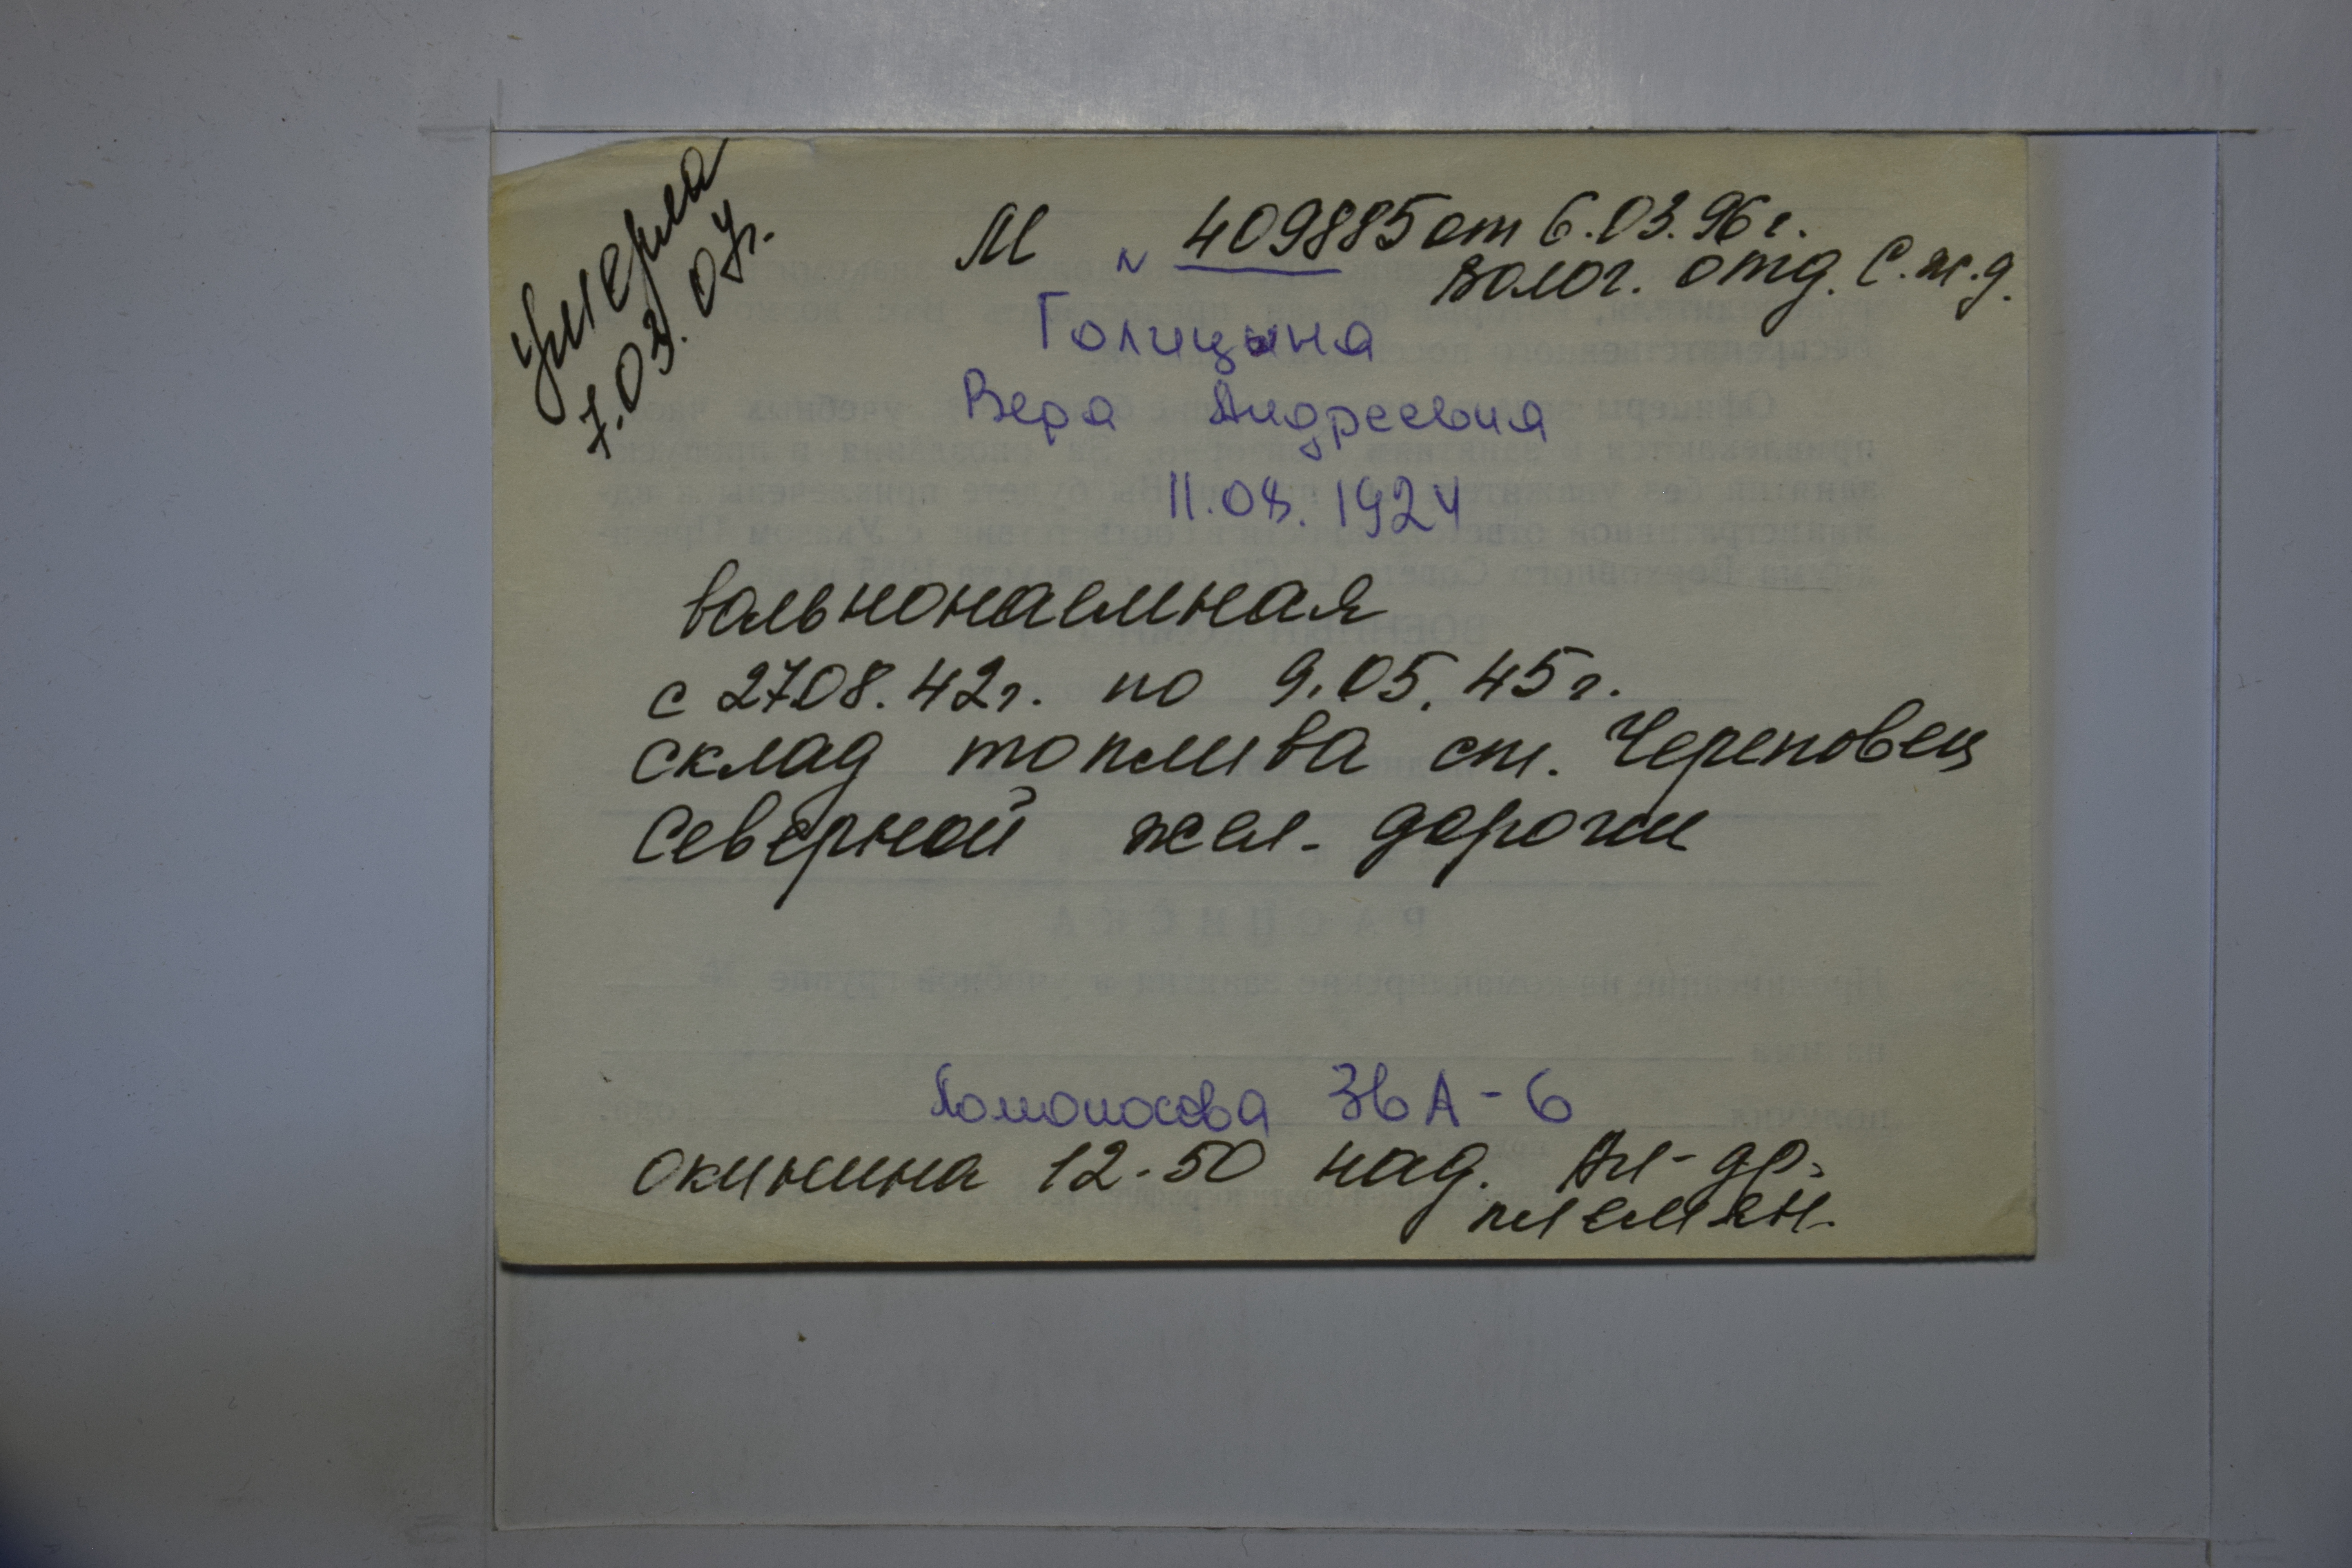 умерла
7.03.07г.
М № 409885 от 6.03.96г.
Волог. отд. С.ж.д.
Голицына
Вера Андреевна
11.08.1924
вольнонаемная
с 27.08.42г. по 9.05.45г.
склад топлива ст. Череповец
Северной жел. дороги
РАСПИСКА
Ломоносова 36А-6
Окинина 12-50 над. Ал-др.
племян.